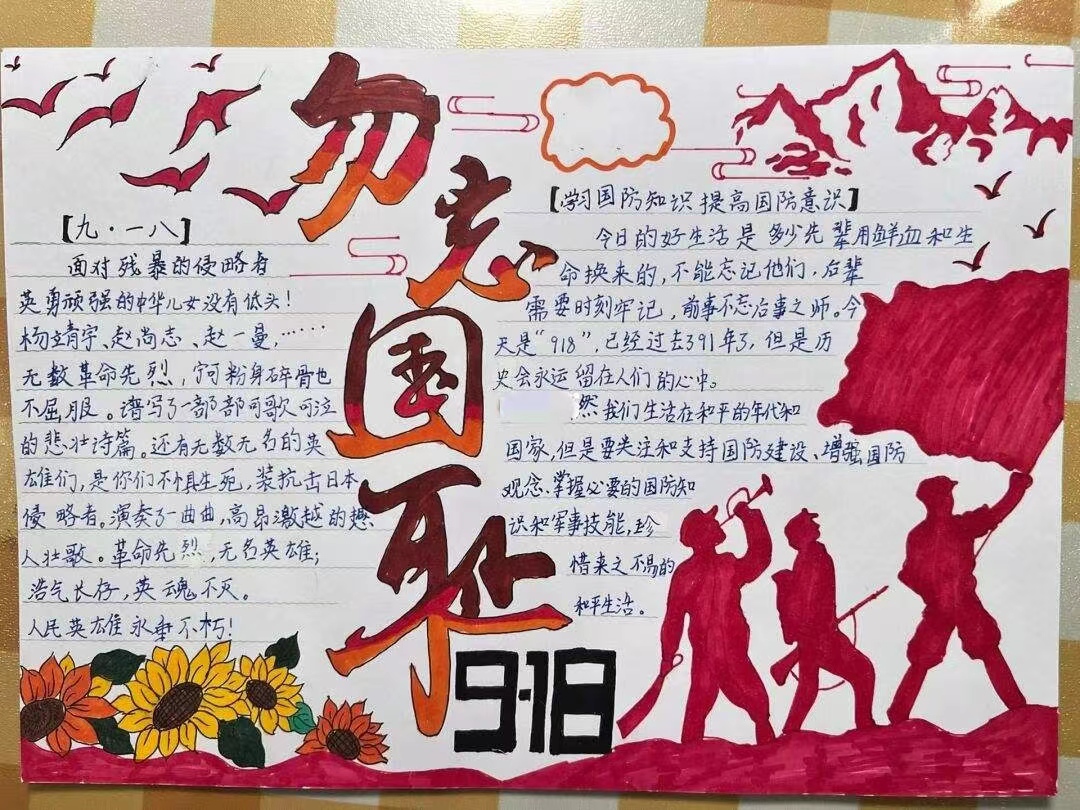 勿忘国耻
9·18
【九·一八】
面对残暴的侵略者
英勇顽强的中华儿女没有低头!
杨靖宇、赵尚志、赵一曼,……
无数革命先烈,宁可粉身碎骨也
不屈服。谱写了一部部可歌可泣
的悲壮诗篇。还有无数无名的英
雄们,是你们不惧生死,装抗击日本
侵略者。演奏了一曲曲,高昂激越的
人壮歌。革命先烈,无名英雄;
浩气长存,英魂不灭。
人民英雄永垂不朽!
【学习国防知识提高国防意识】
今日的好生活是多少先辈用鲜血和生
命换来的,不能忘记他们,后辈
需要时刻牢记,前事不忘后事之师。今
天是“918”,已经过去了91年了,但是历
史会永远留在人们的心中。
然我们生活在和平的年代和
国家,但是要关注和支持国防建设、增强国防
观念、掌握必要的国防知
识和军事技能,珍
惜来之不易的
和平生活。